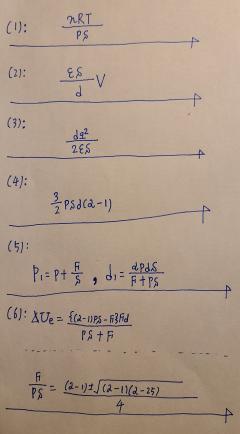 (1): nRT/PS
(2): εS/d V
(3): dq²/2εS
(4): 3/2 PSd(α-1)
(5):
P₁=P+F/S , d₁=αPdS/F+PS
(6): ΔUe = {(α-1)PS-F}Fd/PS+F
F/PS = (α-1)±√(α-1)(α-25)/4